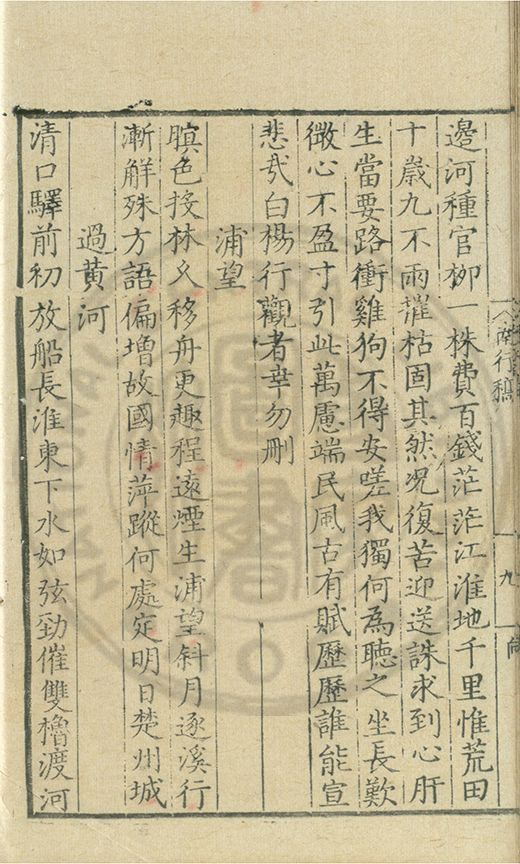 南行稿
九
邊河種官栁一株費百錢茫茫江淮地千里惟荒田
十歲九不雨濯枯固其然况復苦迎送誅求到心肝
生當要路衝雞狗不得安嗟我獨何為聽之坐長歎
微心不盈寸引此萬慮端民風古有賦歷歷誰能宣
悲㢤白楊行觀者幸勿刪
浦望
暝色投林久移舟更趣程遠煙生浦望斜月逐溪行
漸觧殊方語偏增故國情萍蹤何處定明日楚州城
過黄河
清口驛前初放船長淮東下水如弦勁催雙櫓渡河